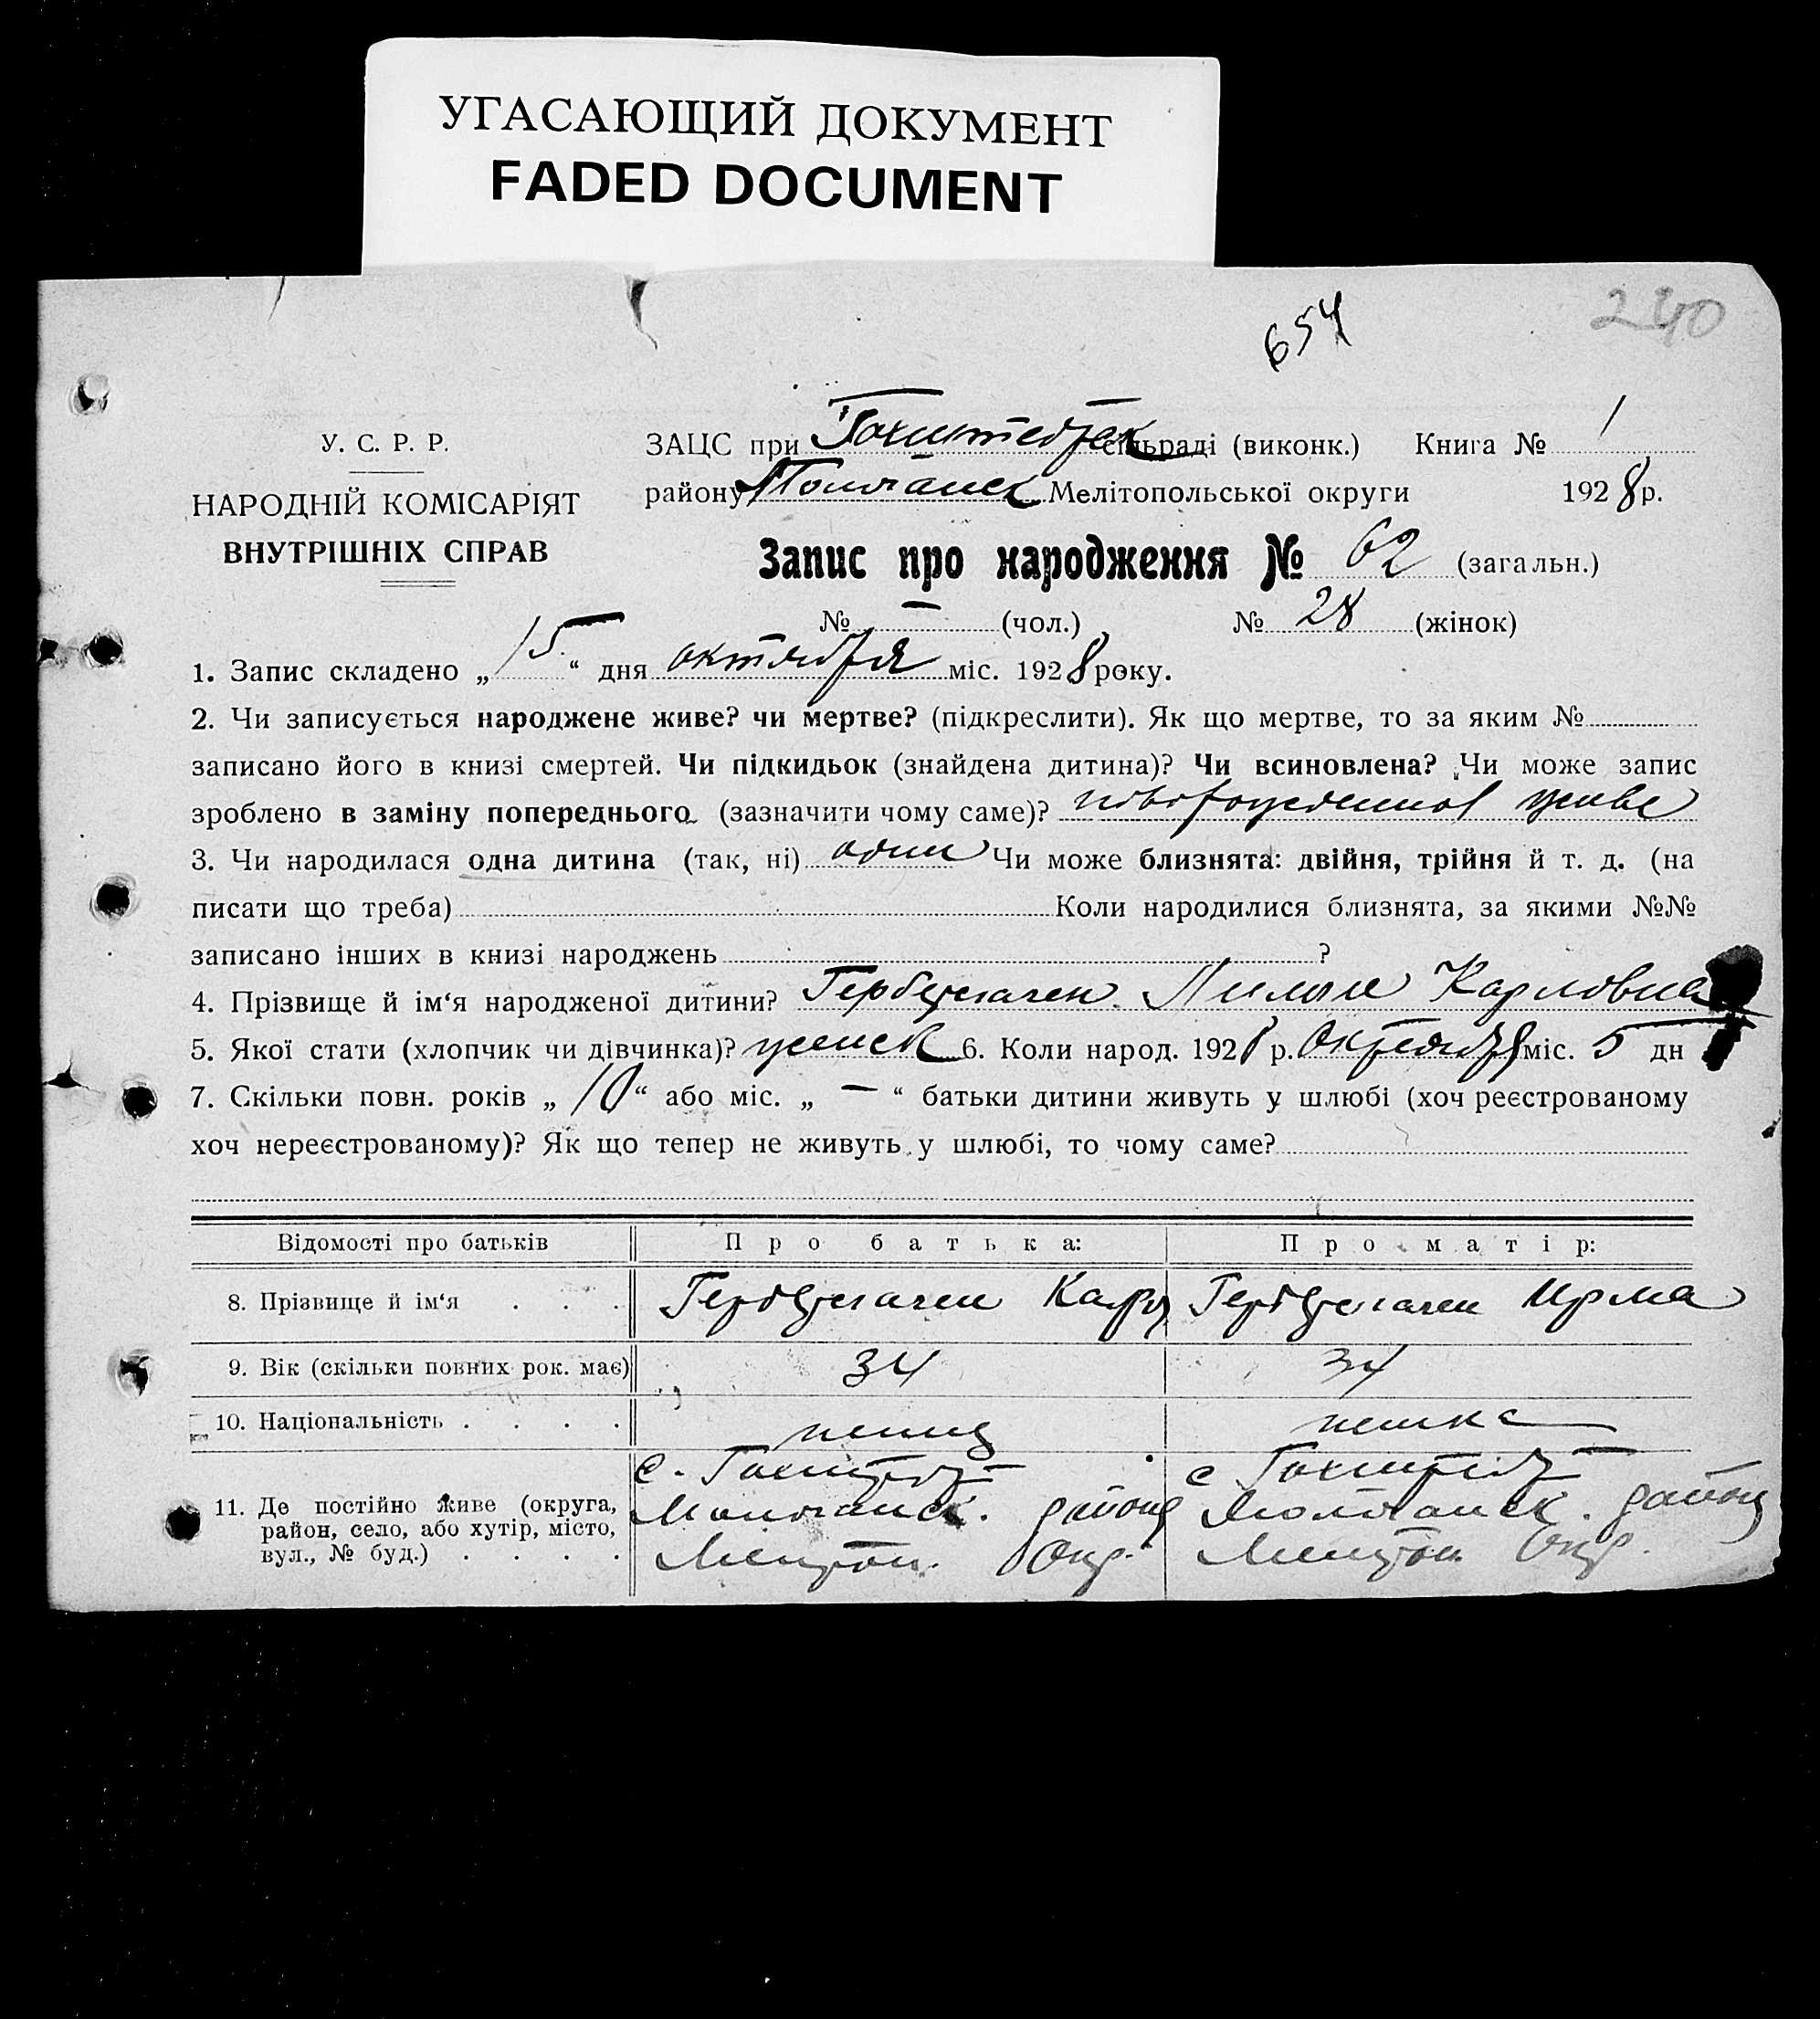 УГАСАЮЩИЙ ДОКУМЕНТ
FADED DOCUMENT
654
240
У. С. Р. Р.
НАРОДНІЙ КОМІСАРІЯТ
ВНУТРІШНІХ СПРАВ
ЗАЦС при Гохштедтск сільраді (виконк.) Книга № 1
району Молочанск Мелітопольської округи 1928 р.
Запис про народження № 62 (загальн.)
№ — (чол.) № 28 (жінок)
1. Запис складено „ 15 “ дня октября міс. 1928 року.
2. Чи записується народжене живе? чи мертве? (підкреслити). Як що мертве, то за яким №
записано його в книзі смертей. Чи підкидьок (знайдена дитина)? Чи всиновлена? Чи може запис
зроблено в заміну попереднього (зазначити чому саме)?
3. Чи народилася одна дитина (так, ні) один Чи може близнята: двійня, трійня й т. д. (на
писати що треба) Коли народилися близнята, за якими №№
записано інших в книзі народжень ?
4. Прізвище й ім‘я народженої дитини? Карловна
5. Якої стати (хлопчик чи дівчинка)? женск 6. Коли народ. 1928 р. Октября міс. 5 дн
7. Скільки повн. років „ 10 “ або міс. „ — “ батьки дитини живуть у шлюбі (хоч реєстрованому
хоч нереєстрованому)? Як що тепер не живуть у шлюбі, то чому саме?
Відомості про батьків Про батька: Про матір:
8. Прізвище й ім‘я . . . Карл Ирма
9. Вік (скільки повних рок. має) 34 34
10. Національність . . . . немец немка
11. Де постійно живе (округа,
район, село, або хутір, місто,
вул., № буд.) . . . .
с. Гохштедт
Молочанск. района
Мелитоп. Окр.
с Гохштедт
Молочанск. района
Мелитоп. Окр.